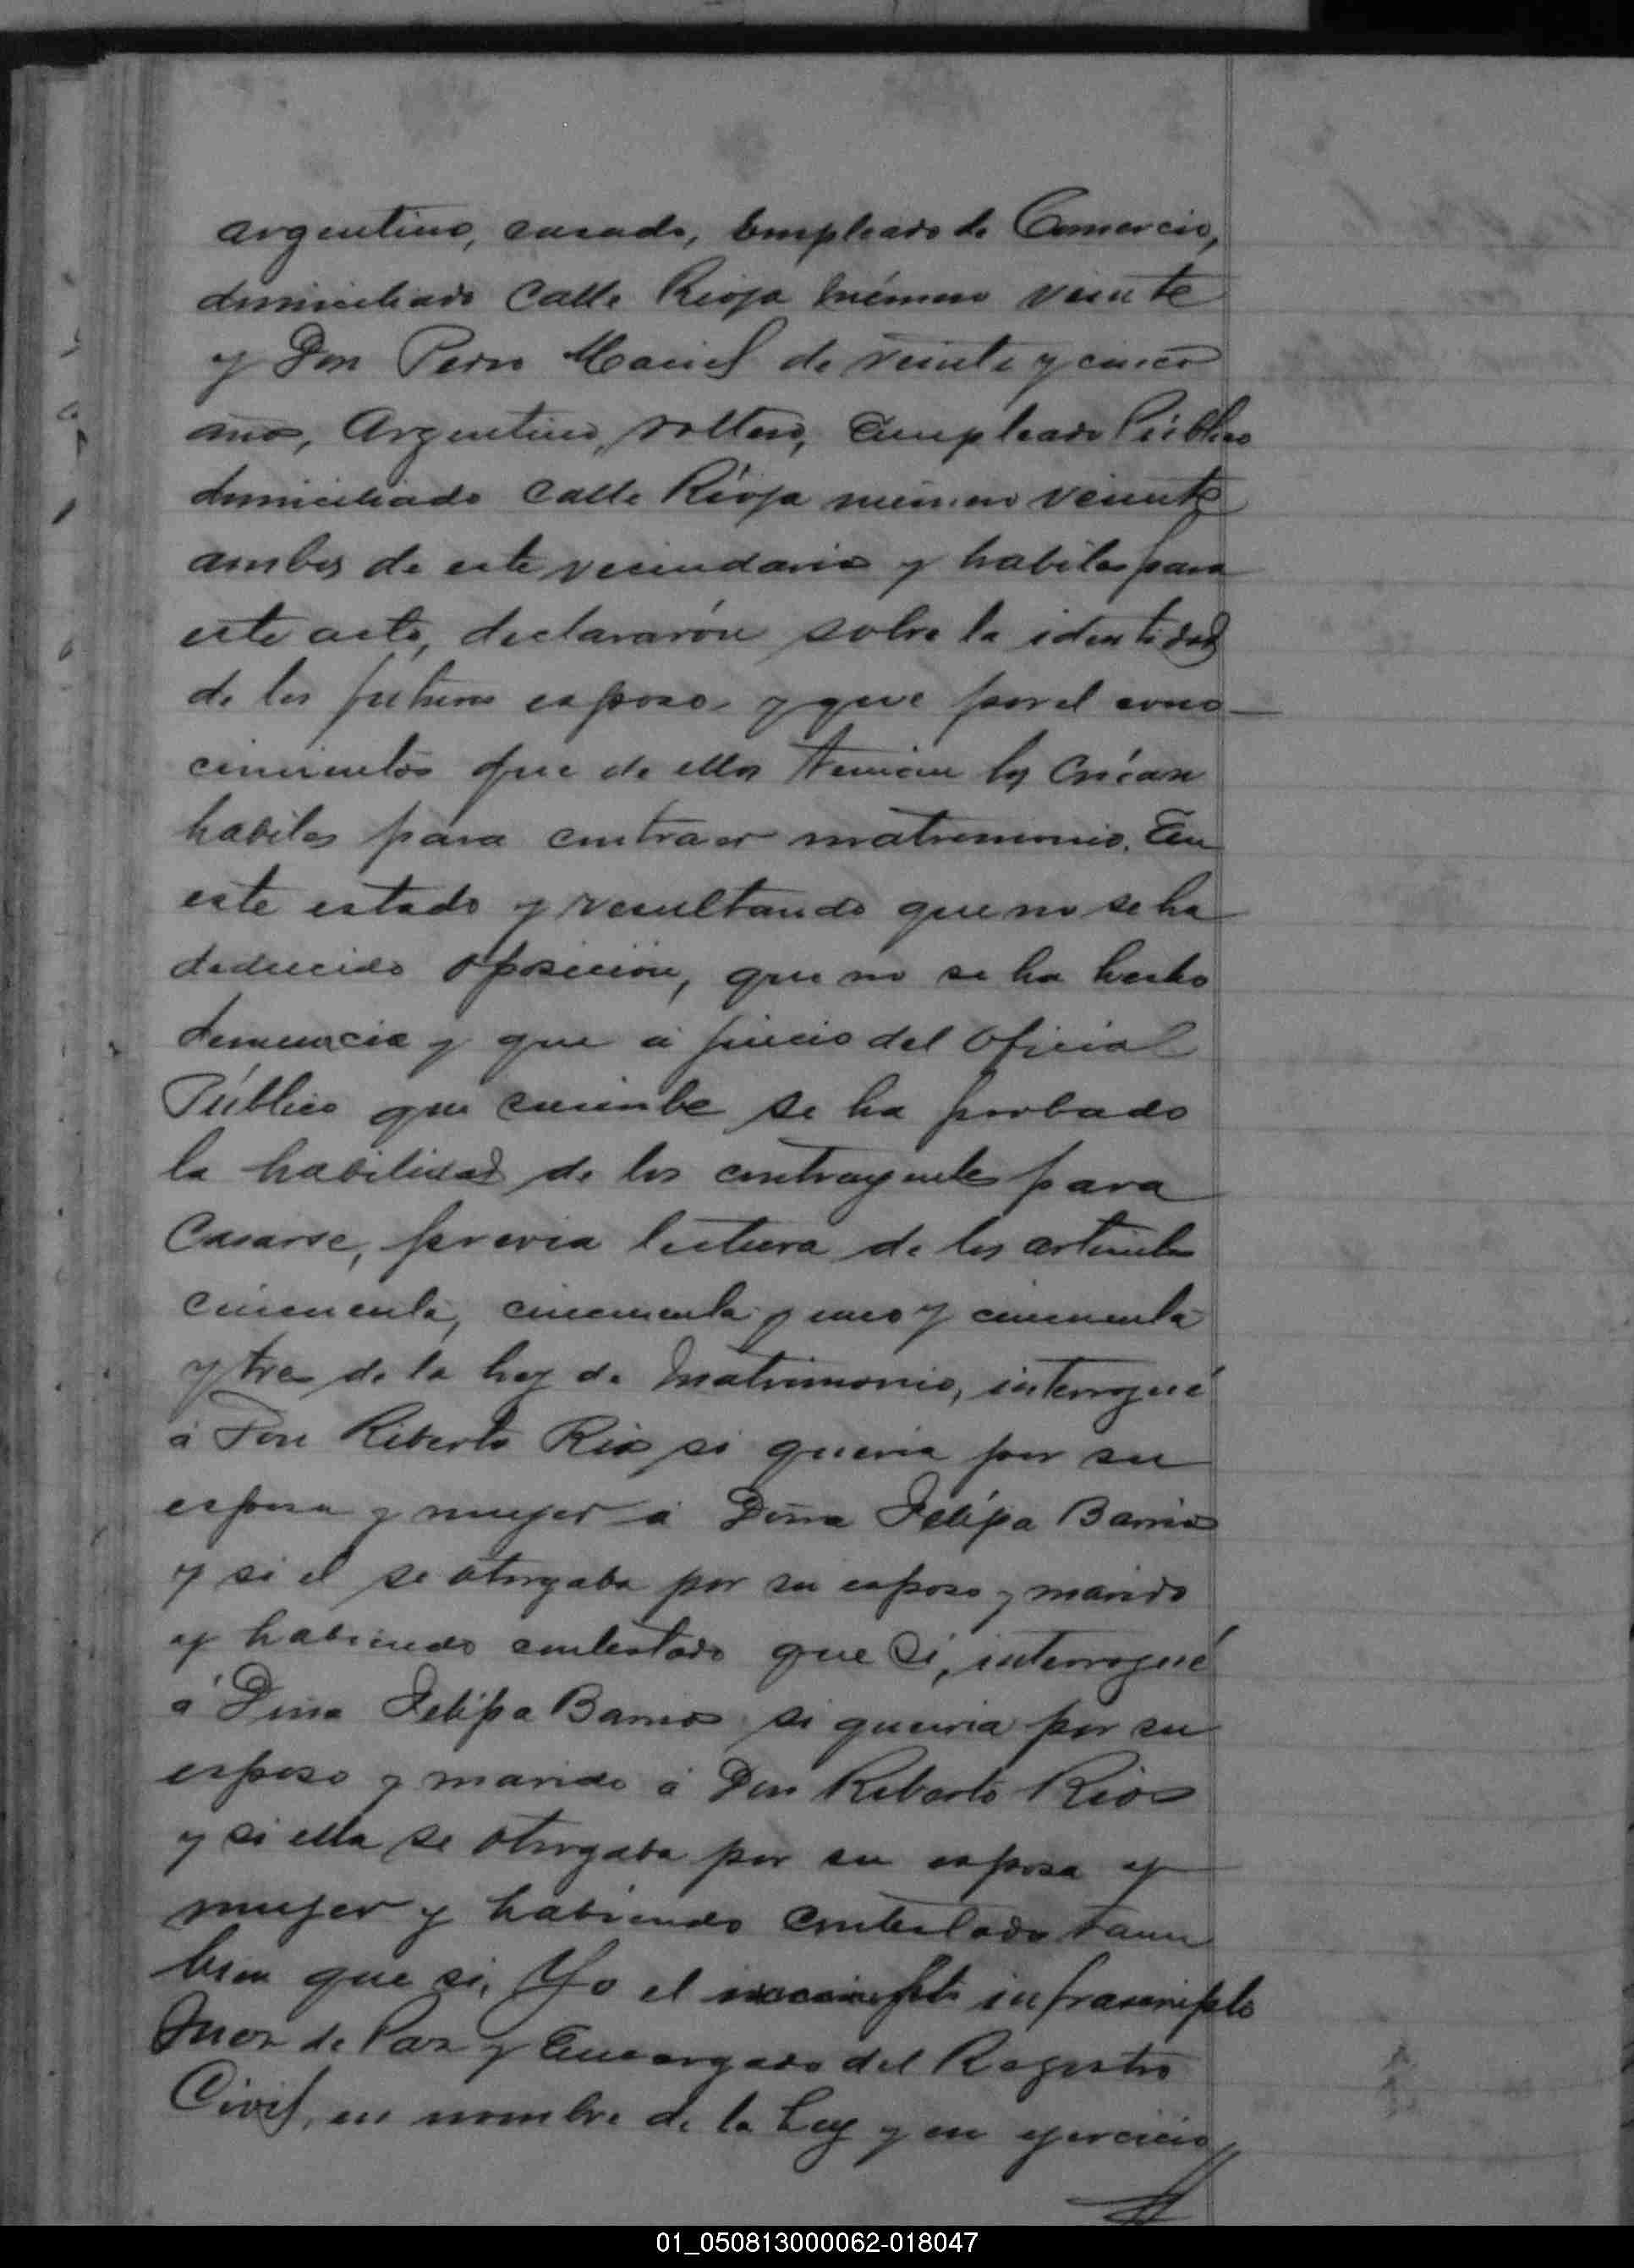 argentino, casado, Empleado de Comercio,
domiciliado Calle Rioja número veinte
y Don Pedro Maciel de veinte y cinco
años, Argentino, soltero, Empleado Público
domiciliado Calle Rioja número veinte
ambos de este vecindario y habiles para
este acto, declararón sobre la identidad
de los futuros esposos y que por el cono
cimientos que de ellos tenian los creian
habiles para contraer matrimonio. En
este estado y resultando que no se ha
deducido oposición, que no se ha hecho
denuncia y que á juicio del Oficial
Público que suscribe se ha probado
la habilidad de los contrayentes para
Casarse, previa lectura de los articulos
cincuenta, cincuenta y uno y cincuenta
y tres de la ley de Matrimonio, interrogué
á Don Riberto Rios si queria por su
esposa y mujer á Doña Felipa Barrios
y si el se otorgaba por su esposo y marido
y habiendo contestado que Si, interrogué
á Doña Felipa Barrios si queria por su
esposo y marido á Don Riberto Rios
y si ella se otorgaba por su esposa y
mujer y habiendo Contestado tam
bien que si, Yo el infrascripto
Juez de Paz y Encargado del Registro
Civil, en nombre de la Ley y en ejercicio
01_050813000062-018047